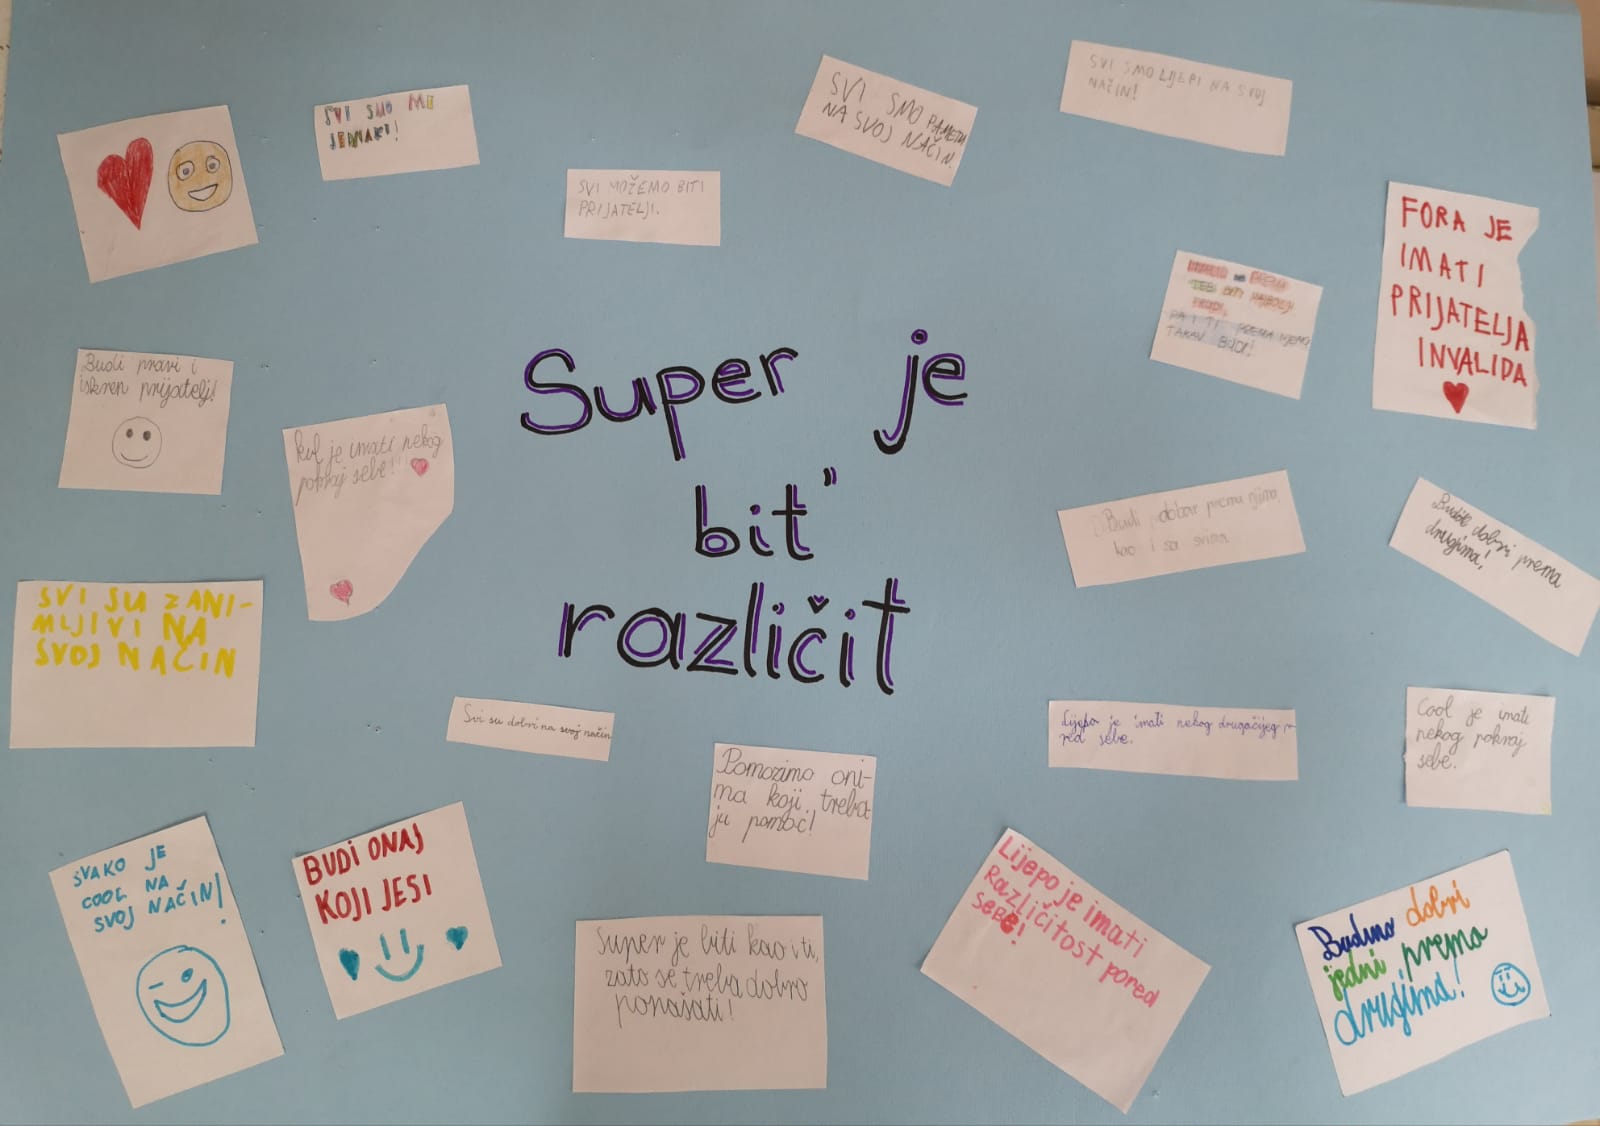 SVI SMO MI
JEDNAKI!
SVI MOŽEMO BITI
PRIJATELJI.
SVI SMO PAMETNI
NA SVOJ NAČIN.
SVI SMO LIJEPI NA SVOJ
NAČIN!
FORA JE
IMATI
PRIJATELJA
INVALIDA
TEBI BITI NAJBOLJI
PA I TI PREMA NJEMU
TAKAV BUDI!
Super je
bit"
različit
Budi pravi i
iskren prijatelj!
kul je imati nekog
pokraj sebe!!!
Budi dobar prema njima
kao i sa svima
Budite dobri prema
drugima!
SVI SU ZANI-
MLJIVI NA
SVOJ NAČIN
Svi su dobri na svoj način
Pomozimo oni-
ma koji treba
ju pomoć!
Lijepo je imati nekog drugačijeg po
red sebe.
Cool je imati
nekog pokraj
sebe.
SVAKO JE
COOL NA
SVOJ NAČIN!
BUDI ONAJ
KOJI JESI
Super je biti kao i ti,
zato se treba dobro
ponašati!
Lijepo je imati
Različitost pored
SEBE!
Budimo dobri
jedni prema
drugima!